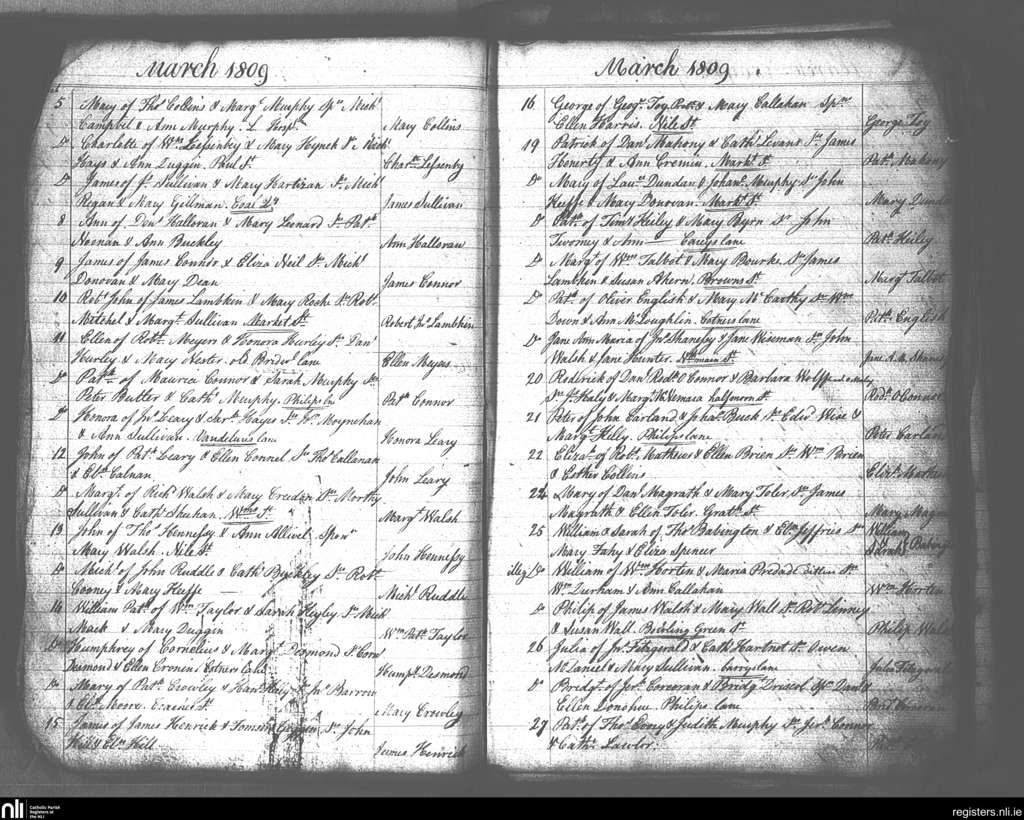 March 1809
5 Mary of Thos Collins & Margt Murphy Sprs Michl
Campbel & Ann Murphy. Mary Collins
Do Charlotte of Wm & Mary Hynch Sr Mich
Hays & Ann Duggin. Paul St. Chare Lysenby
Do James of Js Sullivan & Mary Hartizan Sr Mich
Regan & Mary Gillman. Coal Qy James Sullivan
8 Ann of Denl Halloran & Mary Leonard Sr Patk
Noonan & Ann Buckley Ann Halloran
9 James of James Connor & Eliza Neil Sr Michl
Donovan & Mary Dean James Connor
10 Robt John of James Lambken & Mary Roche Sr Robt
Mitchel & Margt Sullivan Market St. Robert Jn Lambken
11 Ellen of Robt Meyers & Honora Hurley Sr Danl
Hurley & Mary Hester. old lane Ellen Meyers
Do Patk of Maurice Connor & Sarah Murphy Sr
Peter Butter & Cathe Murphy. Philips ln Patk Connor
Do Honora of Jno Leary & Hayes Sr Wm Moynehan
& Ann Sullivan. lane Honora Leary
12 John of Patk Leary & Ellen Connel Sr Thos Callanan
& Elth Calnan John Leary
Do Margt of Richd Walsh & Mary Creedan Sr Morthy
Sullivan & Cathe Sheehan. Wms St. Margt Walsh
13 John of Thos Hennessy & Ann Allivel Sponr
Mary Walsh. Nile St John Hennessy
Do Michl of John Ruddle & Cathe Buckley Sr Robt
Cooney & Mary Keeffe Michl Ruddle
14 William Patk of Wm Taylor & Sarah Hegley Sr Mich
Mack & Mary Duggin Wm Patk Taylor
Do Humphrey of Cornelius & Margt Desmond Sr Corns
Desmond & Ellen Cronin Cotners lane Humpy Desmond
Do Mary of Patk Crowley & Hanh Sr Jno Barron
& Elth Moore. St. Mary Crowley
15 James of James Henrick & Tomsin Sr John
Hill & Eln Hill James Henrick
March 1809
16 George of Geoe Foy & Mary Callahan Sprs
Ellen Harris. Nile St. George Foy
19 Patrick of Danl Mahony & Cathe Levans Sr James
Henerty & Ann Cremin. Markt St. Patk Mahony
Do Mary of Laue Dundan & Johana Murphy Sr John
Keeffe & Mary Donovan. Markt St. Mary
Do Patk of Timy Keiley & Mary Byrn Sr John
Twomey & Ann Careys lane Patk Keiley
Do Margt of Wm Talbot & Mary Bourke. Sr James
Lambken & Susan Ahern. Browns St. Margt Talbot
Do Patk of Oliver English & Mary McCarthy Sr Wm
Down & Ann McLoughlin. Cotners lane Patk English
Do Jane Ann Maria of Jno Shanessy & Jane Wiseman Sr John
Walsh & Jane Hunter. Nth main St. Jane A. M.
20 Roderick of Danl Rodk O Connor & Barbara Wolffe
Sr J. Healy & Margt McNemara halfmoon St. Rodk O Connor
21 Peter of John Carland & Joha Buck Sr Edwd Wise &
Margt Kelly. Philips lane Peter Carland
22 Elizat of Robt Mathews & Ellen Brien Sr Wm Brien
& Esther Collins Elizt
24 Mary of Danl Magrath & Mary Toler. Sr James
Magrath & Ellen Toler. Grat St. Mary
25 William & Sarah of Thos Babington & Eln Jeffries Sr William
Mary Fahy & Eliza Spencer Sarah
illeg Do William of Wm Horten & Maria Sr
Wm Durham & Ann Callahan Wm Horten
Do Philip of James Walsh & Mary Wall Sr Robt
& Susan Wall. Bowling Green St. Philip
26 Julia of Jno Fitzgerald & Cathe Hartnet Sr Owen
McDaniel & Mary Sullivan. Careys lane Julia
Do Bridgt of Jerh Corcoran & Bridgt Driscol Sprs Danl &
Ellen Donohue Philips lane Brid
27 Patk of Thos & Judith Murphy Sr Jerh Connor
& Cathe Lawlor.
nli
Catholic Parish
Registers at
the NLI
registers.nli.ie